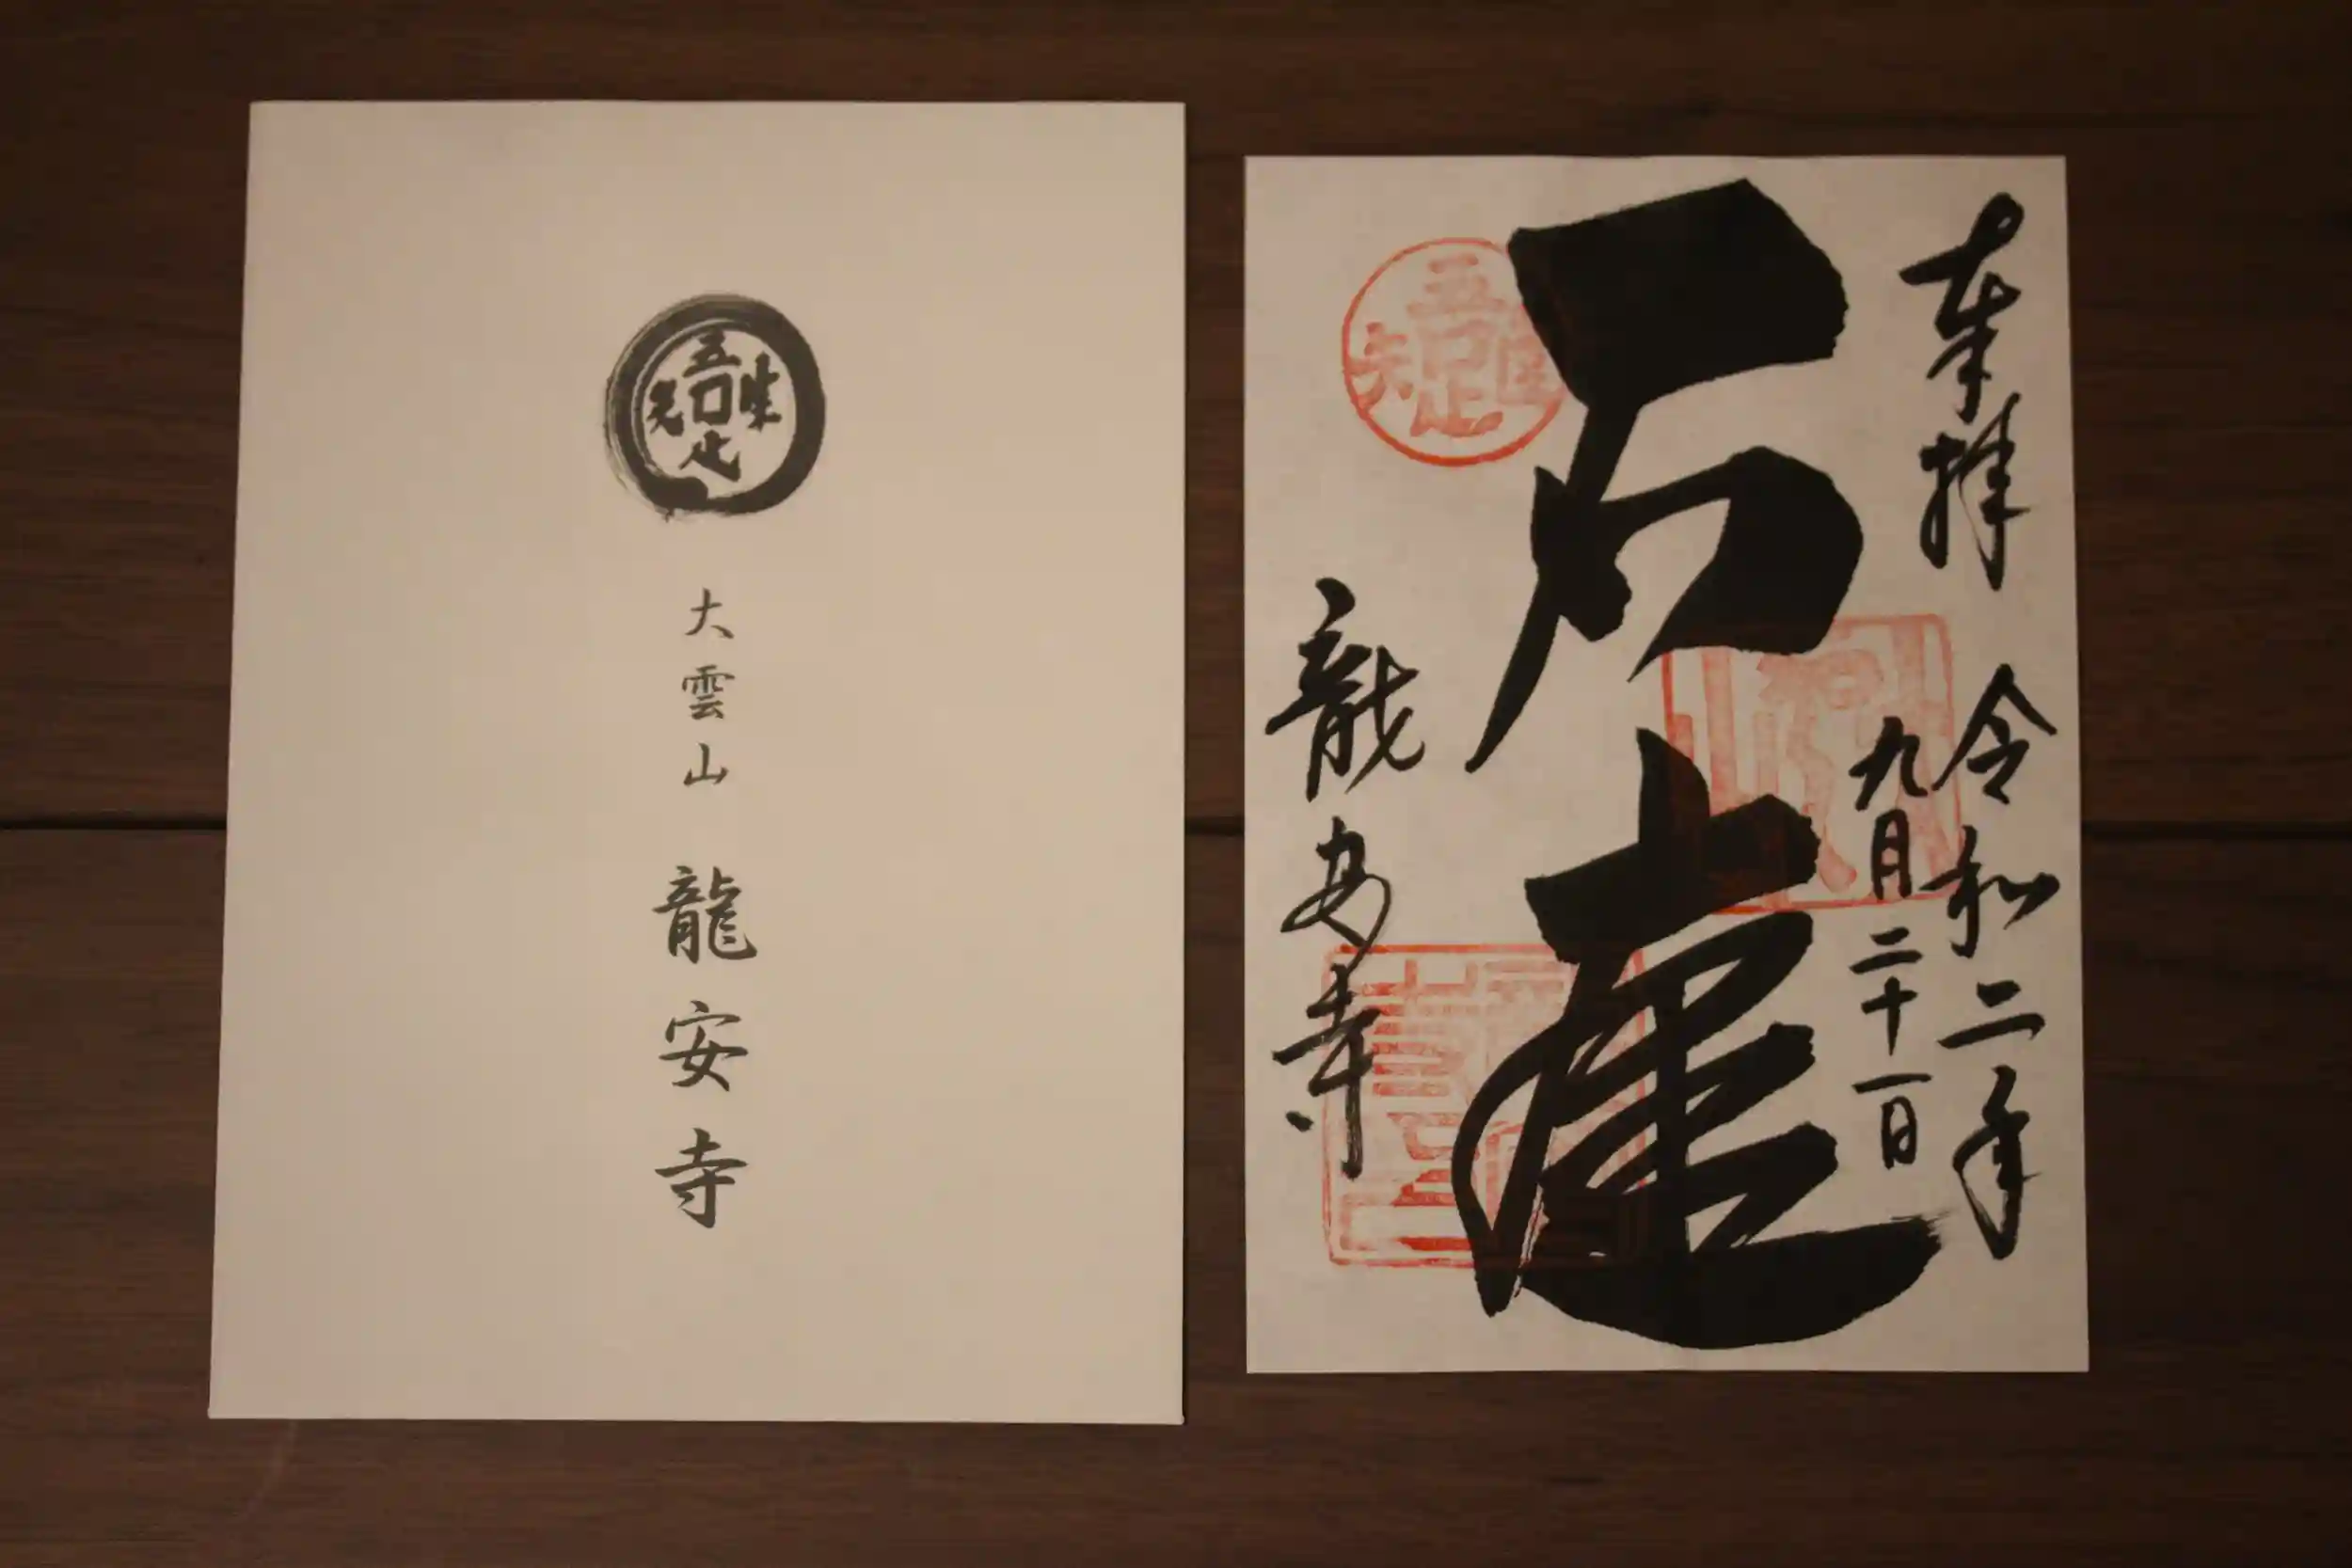 吾唯足知
大雲山 龍安寺
奉拝
令和二年
九月二十一日
石庭
龍安寺
吾唯足知